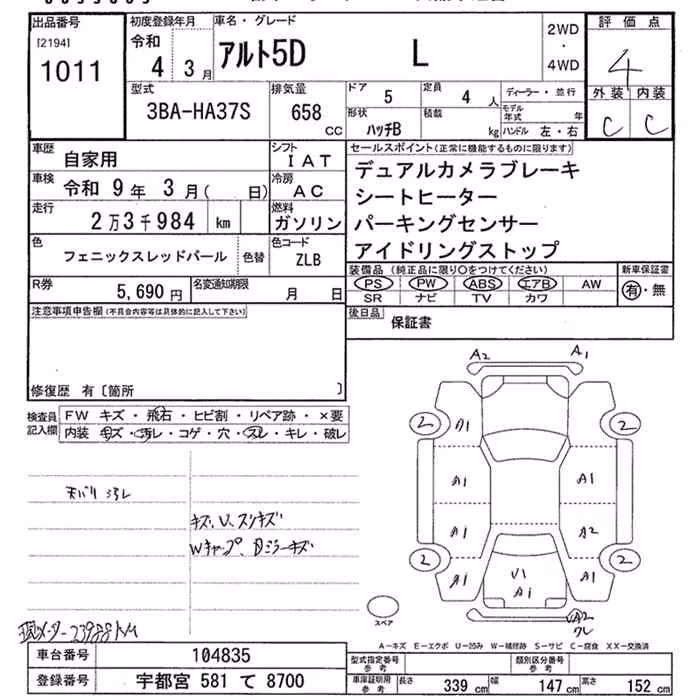 出品番号
[2194]
1011
初度登録年月
令和
4 3月
車名・グレード
アルト5D L
2WD
・
4WD
評価点
4
外装 内装
C C
型式
3BA-HA37S
排気量
658
CC
ドア
5
定員
4 人
形状
ハッチB
積載
kg
ディーラー・並行
モデル年式 年
ハンドル 左・右
車歴
自家用
シフト
IAT
車検
令和 9年 3月( 日)
冷房
AC
走行
2万3千984 km
燃料
ガソリン
色
フェニックスレッドパール
色替
色コード
ZLB
R券
5,690 円
名変通知期限
月 日
セールスポイント(正常に機能するものに限ります)
デュアルカメラブレーキ
シートヒーター
パーキングセンサー
アイドリングストップ
装備品(純正品に限り○をつけてください)
PS PW ABS エアB AW
SR ナビ TV カワ
新車保証書
有・無
後日品
保証書
注意事項申告欄(不具合内容等は具体的に記入して下さい)
修復歴 有〔箇所 〕
検査員
記入欄
FW キズ・飛石・ヒビ割・リペア跡・×要
内装 キズ・汚レ・コゲ・穴・スレ・キレ・破レ
天バリ ヨゴレ
キズ、U、スリキズ
Wキャップ、Dミラーキズ
現メーター23988KM
A2 A1
2 A1 2
A1 A1
A1 A2
2 A1 A1 2
U1
A1
A2
スペア
A-キズ E-エクボ U-凹み W-補修跡 S-サビ C-腐食 XX-交換済
車台番号
104835
登録番号
宇都宮 581 て 8700
型式指定番号
参考
類別区分番号
参考
車庫証明用
参考
長さ 339 cm
幅 147 cm
高さ 152 cm